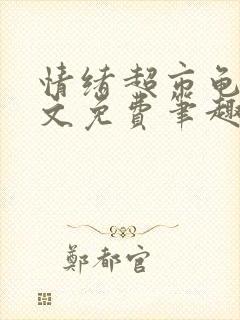 情绪超市龟
文免费笔趣
郑都官